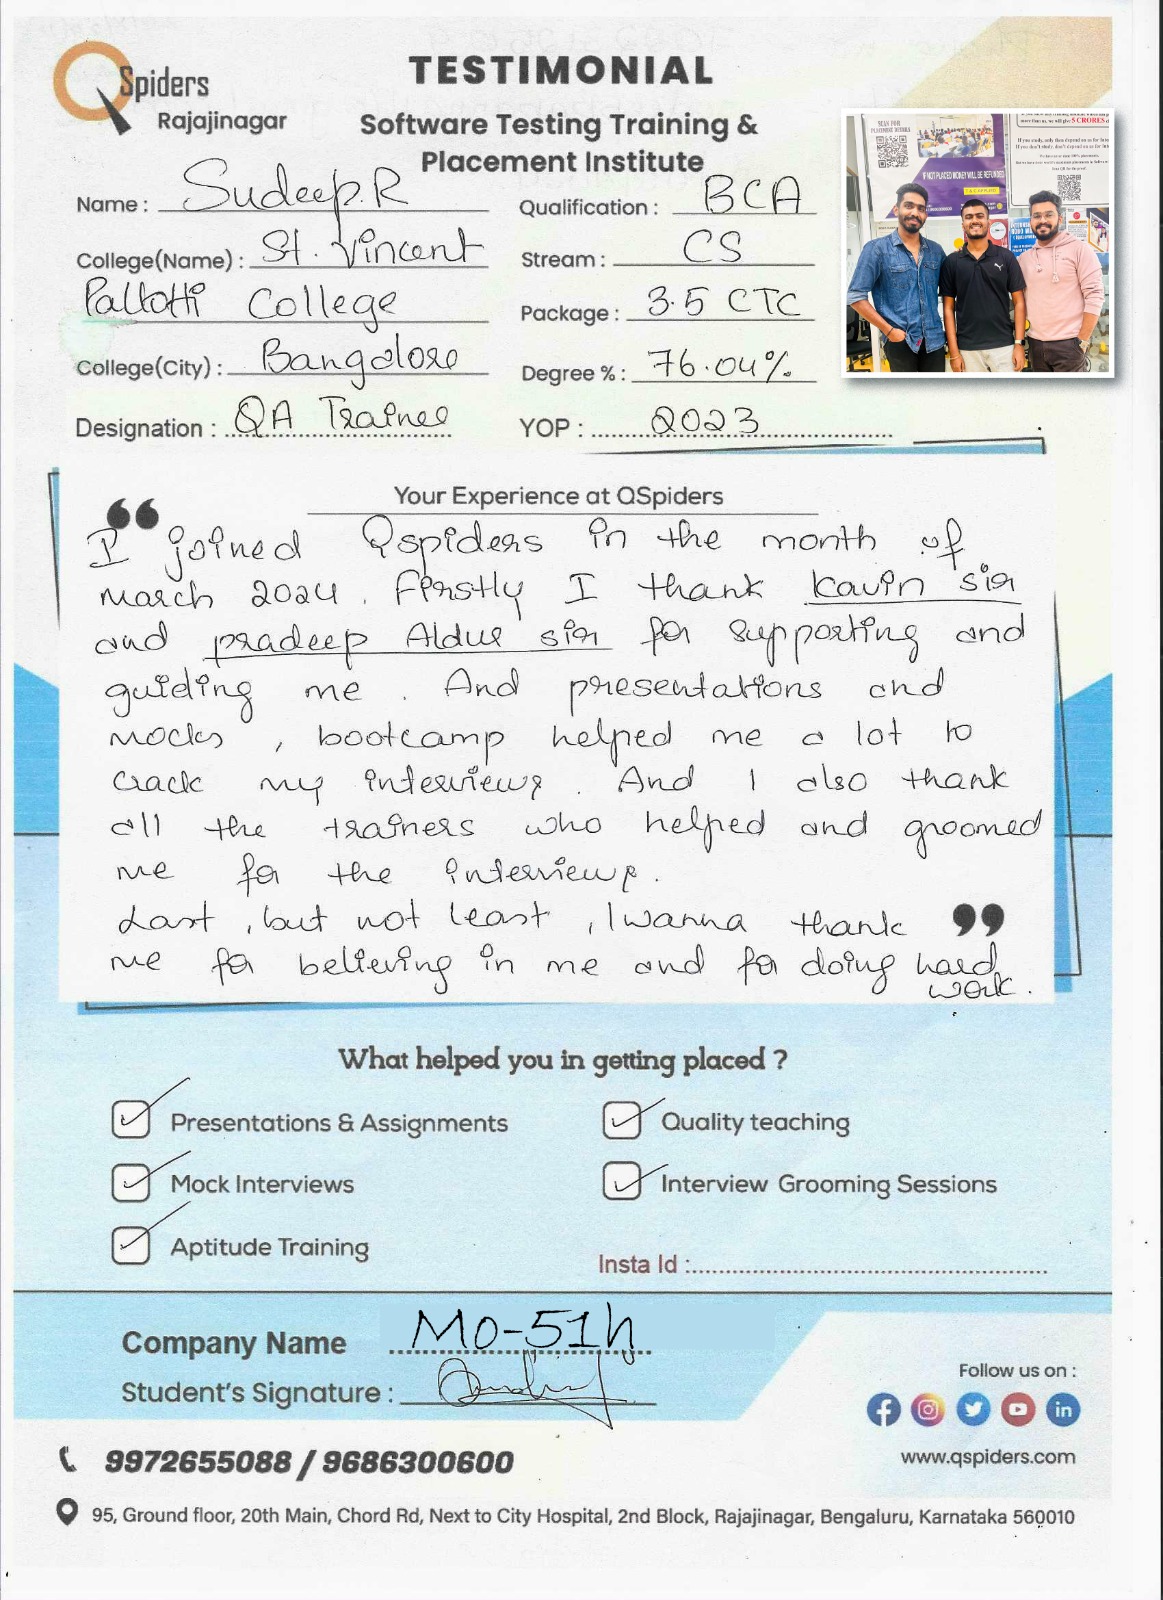 QSpiders
Rajajinagar
TESTIMONIAL
Software Testing Training &
Placement Institute
Name : Sudeep.R
College(Name) : St. Vincent
Pallotti College
College(City) : Bangalore
Designation : QA Trainee
Qualification : BCA
Stream : CS
Package : 3.5 CTC
Degree % : 76.04%
YOP : 2023
SCAN FOR
IF NOT PLACED MONEY WILL BE REFUNDED
5 CRORES
Your Experience at QSpiders
I joined Qspiders in the month of
March 2024. Firstly I thank Kavin sir
and pradeep Aldus sir for supporting and
guiding me. And presentations and
Mocks, bootcamp helped me a lot to
crack my interviews. And I also thank
all the trainers who helped and groomed
me for the interviews.
Last, but not least, I wanna thank
me for believing in me and for doing hard
work.
What helped you in getting placed ?
Presentations & Assignments
Quality teaching
Mock Interviews
Interview Grooming Sessions
Aptitude Training
Insta Id :
Company Name MO-51h
Student's Signature :
Follow us on :
www.qspiders.com
9972655088 / 9686300600
95, Ground floor, 20th Main, Chord Rd, Next to City Hospital, 2nd Block, Rajajinagar, Bengaluru, Karnataka 560010